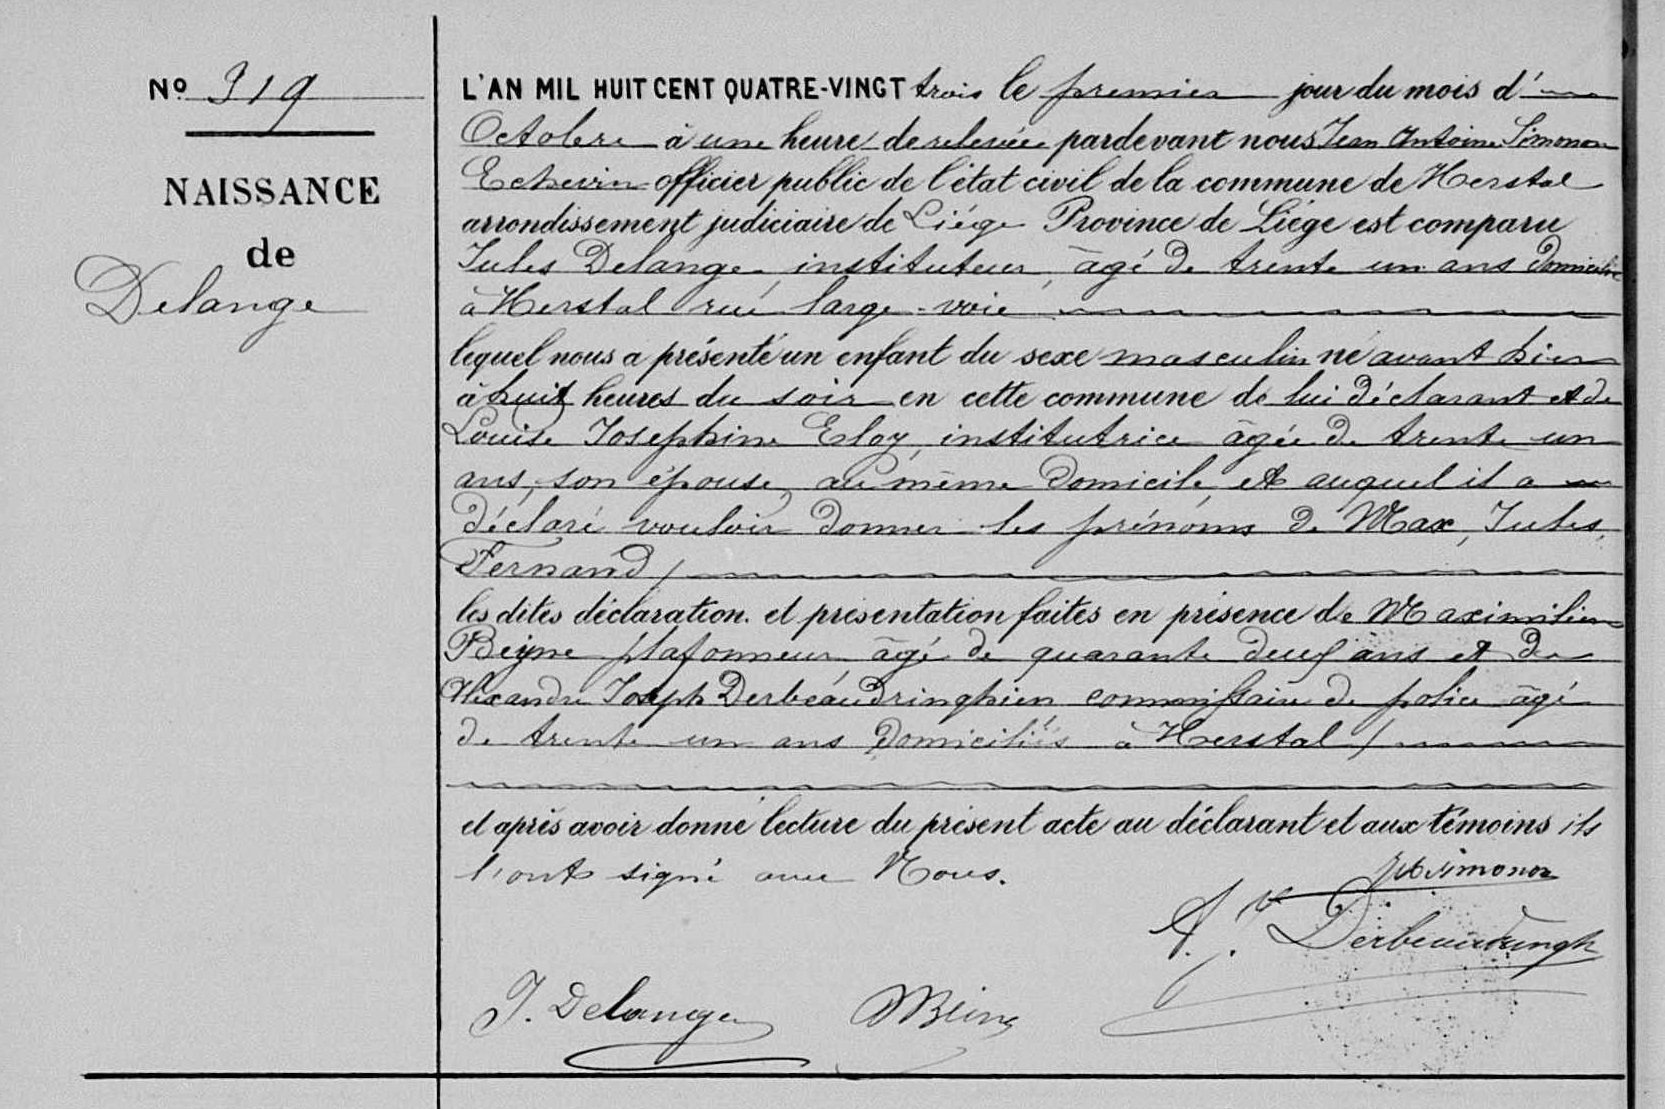 No 319
NAISSANCE
de
Delange
L'AN MIL HUIT CENT QUATRE-VINGT trois le premier jour du mois d'
Octobre à une heure de relevée pardevant nous Jean Antoine Simonon
Echevin officier public de l'état civil de la commune de Herstal
arrondissement judiciaire de Liége Province de Liége est comparu
Jules Delange, instituteur, âgé de trente un ans domicilié
à Herstal rue large-voie
lequel nous a présenté un enfant du sexe masculin né avant hier
à huit heures du soir en cette commune de lui déclarant et de
Louise Josephine Eloy, institutrice âgée de trente un
ans, son épouse, au même domicile, et auquel il a
déclaré vouloir donner les prénoms de Max, Jules,
Fernand /
les dites déclaration. et présentation faites en présence de Maximilien
Beyne plafonneur âgé de quarante deux ans et de
Alexandre Joseph Derbéaudringhien commissaire de police âgé
de trente un ans domiciliés à Herstal /
et après avoir donné lecture du présent acte au déclarant et aux témoins ils
l'ont signé avec Nous.
Simonon
A. J. Derbeaudringh
J. Delange